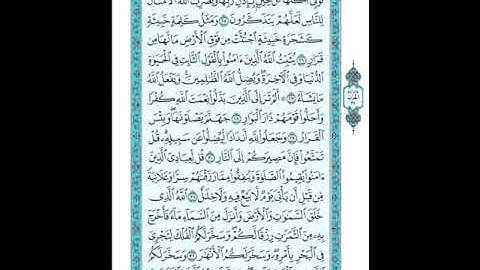 تُؤْتِىٓ أُكُلَهَا كُلَّ حِينٍۭ بِإِذْنِ رَبِّهَا وَيَضْرِبُ ٱللَّهُ ٱلْأَمْثَالَ
لِلنَّاسِ لَعَلَّهُمْ يَتَذَكَّرُونَ ٢٥ وَمَثَلُ كَلِمَةٍ خَبِيثَةٍ
كَشَجَرَةٍ خَبِيثَةٍ ٱجْتُثَّتْ مِن فَوْقِ ٱلْأَرْضِ مَا لَهَا مِن
قَرَارٍ ٢٦ يُثَبِّتُ ٱللَّهُ ٱلَّذِينَ ءَامَنُوا۟ بِٱلْقَوْلِ ٱلثَّابِتِ فِى ٱلْحَيَوٰةِ
ٱلدُّنْيَا وَفِى ٱلْءَاخِرَةِ وَيُضِلُّ ٱللَّهُ ٱلظَّٰلِمِينَ وَيَفْعَلُ ٱللَّهُ
مَا يَشَآءُ ٢٧ ۞ أَلَمْ تَرَ إِلَى ٱلَّذِينَ بَدَّلُوا۟ نِعْمَتَ ٱللَّهِ كُفْرًا
وَأَحَلُّوا۟ قَوْمَهُمْ دَارَ ٱلْبَوَارِ ٢٨ جَهَنَّمَ يَصْلَوْنَهَا وَبِئْسَ
ٱلْقَرَارُ ٢٩ وَجَعَلُوا۟ لِلَّهِ أَندَادًا لِّيُضِلُّوا۟ عَن سَبِيلِهِۦ قُلْ
تَمَتَّعُوا۟ فَإِنَّ مَصِيرَكُمْ إِلَى ٱلنَّارِ ٣٠ قُل لِّعِبَادِىَ ٱلَّذِينَ
ءَامَنُوا۟ يُقِيمُوا۟ ٱلصَّلَوٰةَ وَيُنفِقُوا۟ مِمَّا رَزَقْنَٰهُمْ سِرًّا وَعَلَانِيَةً
مِّن قَبْلِ أَن يَأْتِىَ يَوْمٌ لَّا بَيْعٌ فِيهِ وَلَا خِلَٰلٌ ٣١ ٱللَّهُ ٱلَّذِى
خَلَقَ ٱلسَّمَٰوَٰتِ وَٱلْأَرْضَ وَأَنزَلَ مِنَ ٱلسَّمَآءِ مَآءً فَأَخْرَجَ
بِهِۦ مِنَ ٱلثَّمَرَٰتِ رِزْقًا لَّكُمْ وَسَخَّرَ لَكُمُ ٱلْفُلْكَ لِتَجْرِىَ
فِى ٱلْبَحْرِ بِأَمْرِهِۦ وَسَخَّرَ لَكُمُ ٱلْأَنْهَٰرَ ٣٢ وَسَخَّرَ لَكُمُ